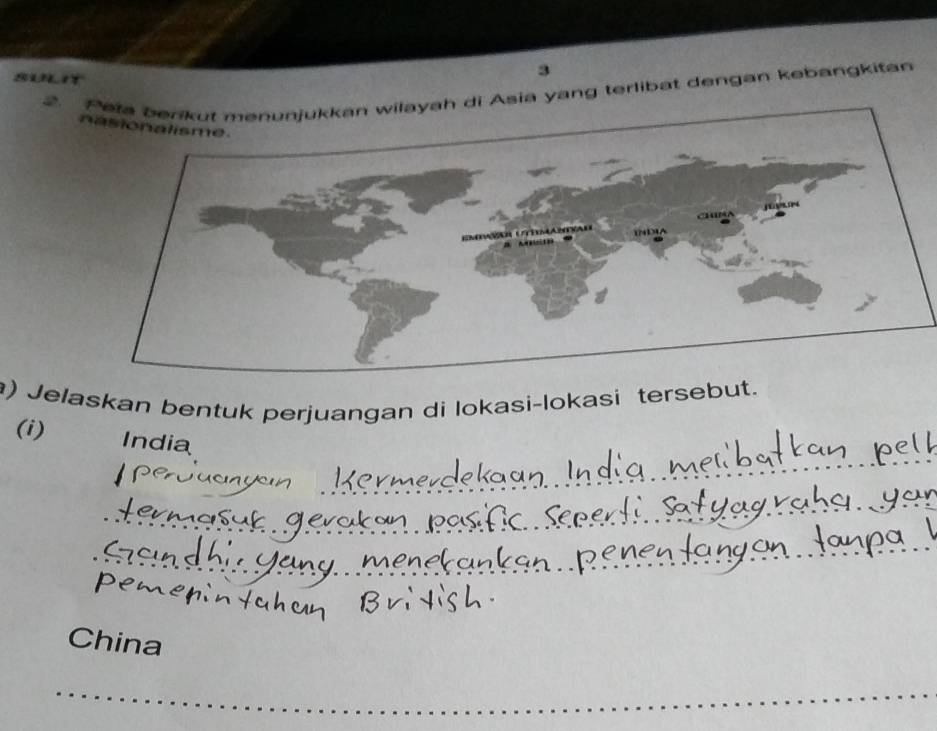 SULIT
3
2. Peta berikut menunjukkan wilayah di Asia yang terlibat dengan kebangkitan
nasionalisme.
CHINA
JEPUN
EMPAYAR UTHMANIYAH
INDIA
& MESIR
a) Jelaskan bentuk perjuangan di lokasi-lokasi tersebut.
(i) India
perjuangan Kermerdekaan India melibatkan
termasuk gerakan pasific seperti satyagraha
Gandhi. yang menekankan penentangan tanpa
pemerintahan British.
China